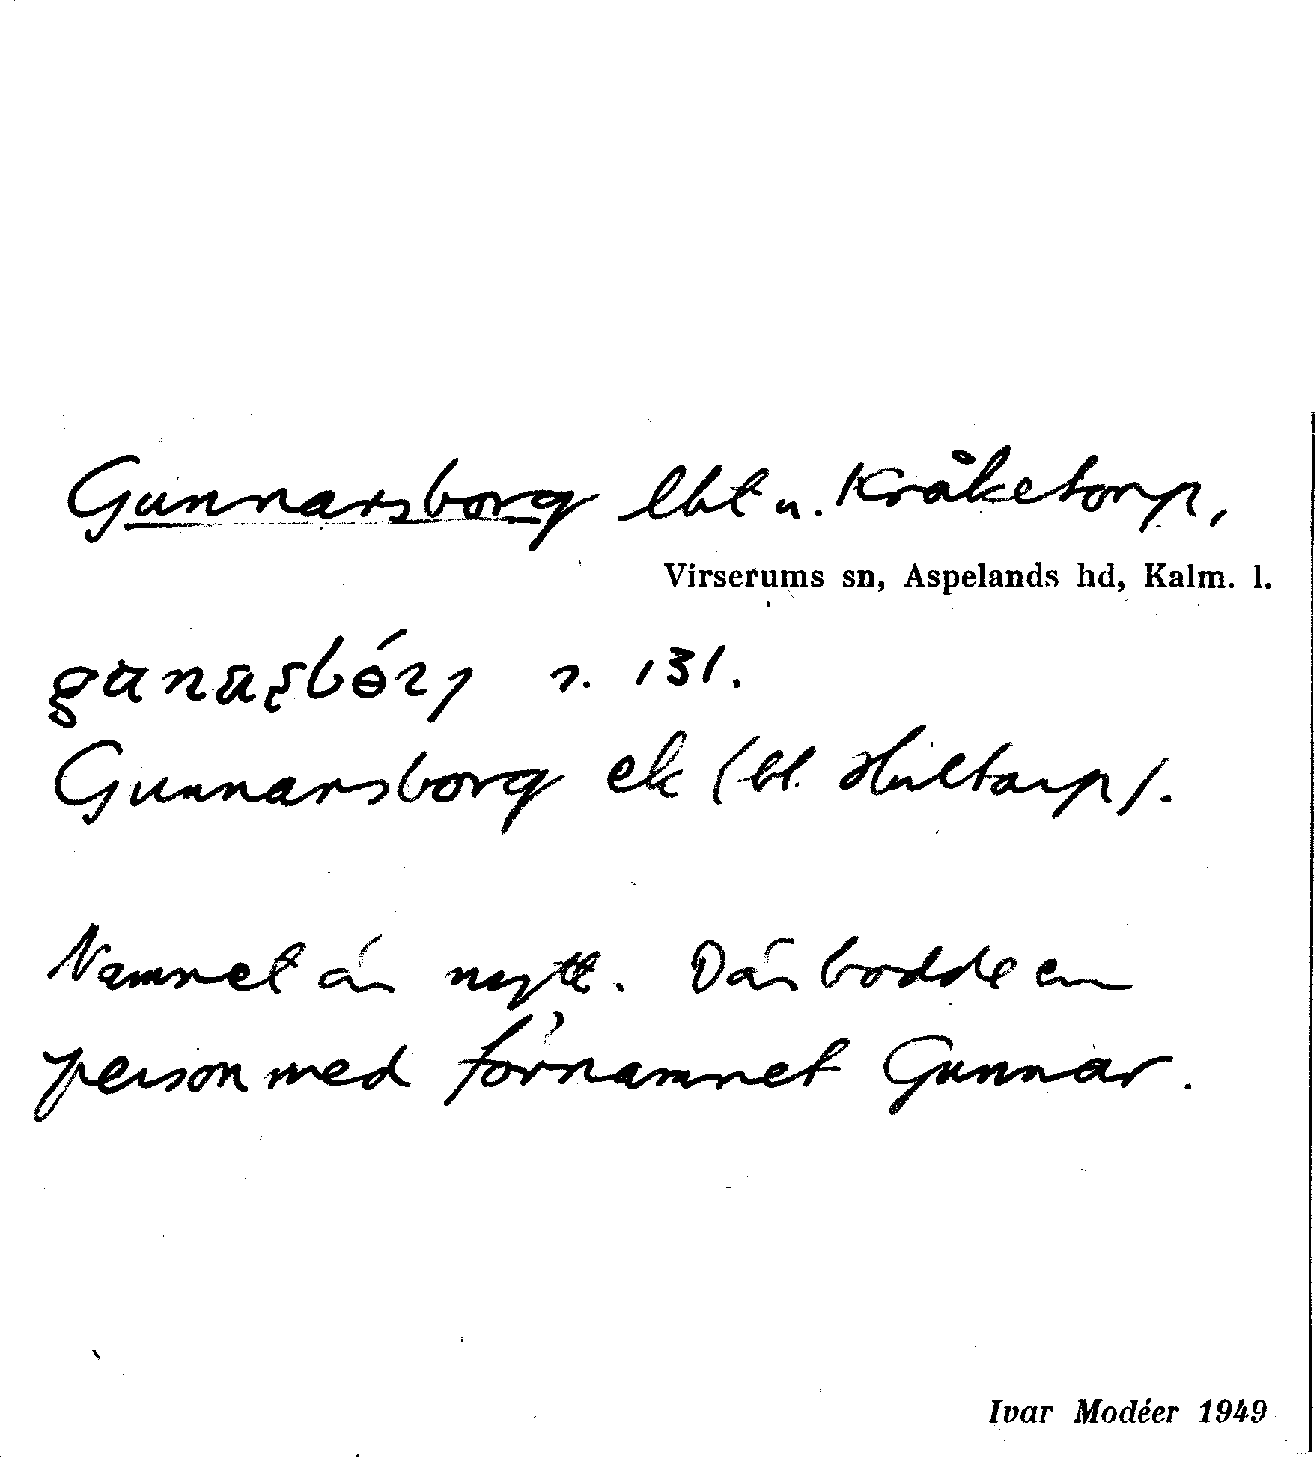 Gunnarsborg lht u. Kråketorp,
Virserums sn, Aspelands hd, Kalm. l.
131.
Gunnarsborg ek (bl. Hultorp).
Namnet är nytt. Där bodde en
person med förnamnet Gunnar.
Ivar Modéer 1949